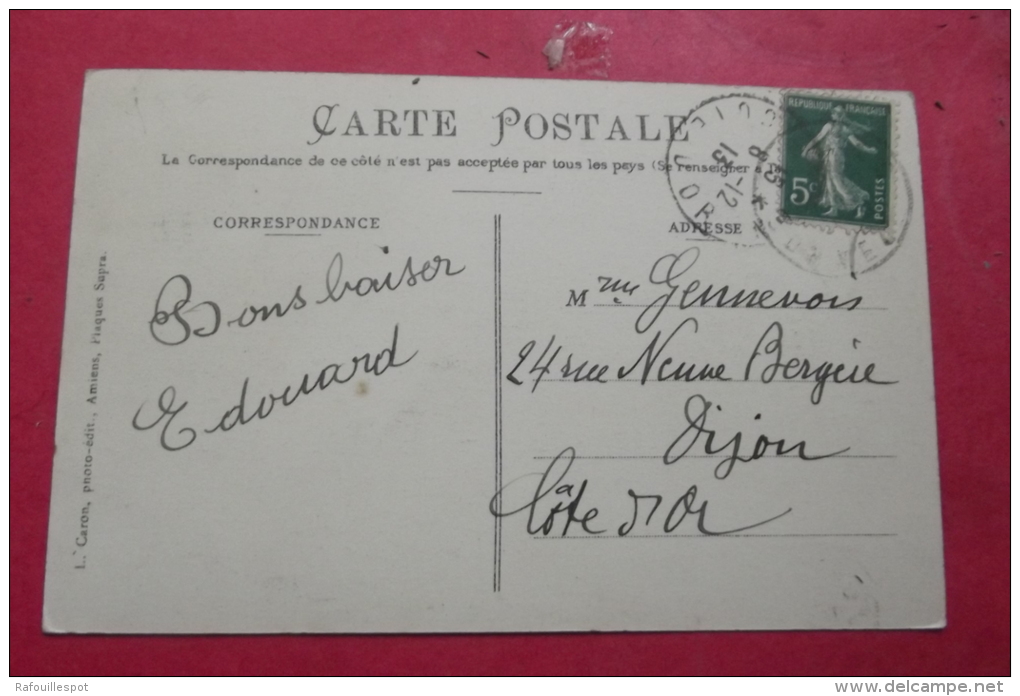 CARTE POSTALE
La Correspondance de ce côté n'est pas acceptée par tous les pays (Se renseigner à la
CORRESPONDANCE
ADRESSE
Bons baiser
Edouard
Mme Gennevois
24 rue Neuve Bergère
Dijon
Côte d'Or
L. Caron, photo-édit., Amiens, Plaques Supra.
REPUBLIQUE FRANÇAISE
5c
POSTES
13
8-12
D'OR
Rafouillespot
www.delcampe.net